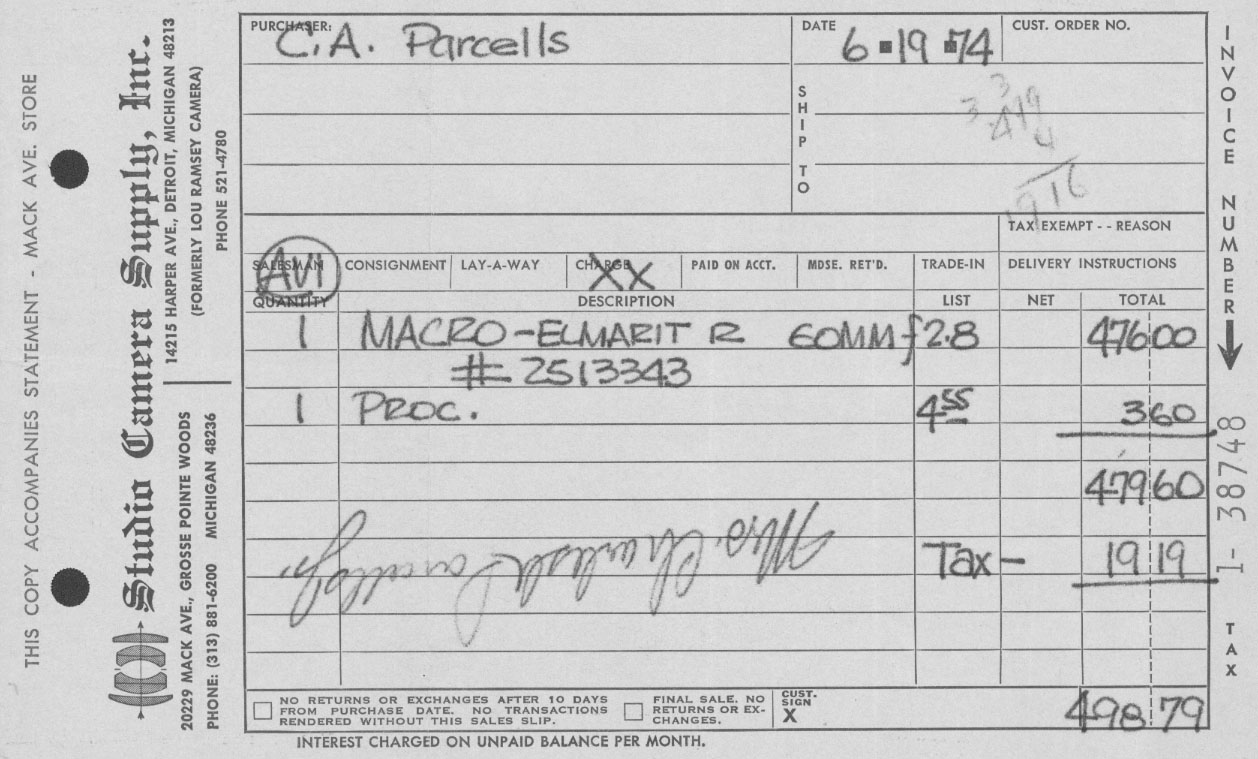 THIS COPY ACCOMPANIES STATEMENT - MACK AVE. STORE
Studio Camera Supply, Inc.
14215 HARPER AVE., DETROIT, MICHIGAN 48213
(FORMERLY LOU RAMSEY CAMERA)
PHONE 521-4780
20229 MACK AVE., GROSSE POINTE WOODS
MICHIGAN 48236
PHONE: (313) 881-6200
PURCHASER: C.A. Parcells
DATE 6 19 74
CUST. ORDER NO.
SHIP TO
3 3
479
4
1916
TAX EXEMPT - - REASON
SALESMAN AVI CONSIGNMENT LAY-A-WAY CHARGE XX PAID ON ACCT. MDSE. RET'D. TRADE-IN DELIVERY INSTRUCTIONS
QUANTITY DESCRIPTION LIST NET TOTAL
1 MACRO-ELMARIT R 60MM f2.8 476 00
# 2513343
1 PROC. 4 55 3 60
479 60
Tax - 19 19
Mrs. Charles A Parcells Jr.
NO RETURNS OR EXCHANGES AFTER 10 DAYS
FROM PURCHASE DATE. NO TRANSACTIONS
RENDERED WITHOUT THIS SALES SLIP.
FINAL SALE. NO
RETURNS OR EX-
CHANGES.
CUST.
SIGN
X
498 79
INTEREST CHARGED ON UNPAID BALANCE PER MONTH.
INVOICE NUMBER
1- 38748
TAX